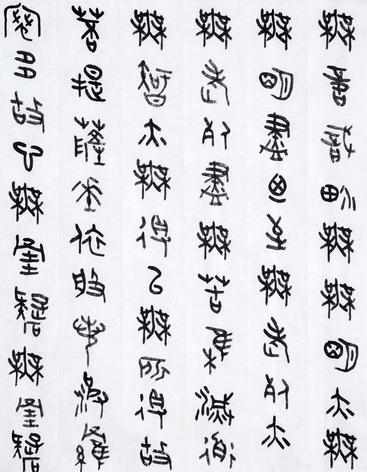 無意識界無無明亦無
無明盡迺至無老死亦
無老死盡無苦集滅道
無智亦無得以無所得故
菩提薩埵依般若波羅
蜜多故心無罣礙無罣礙